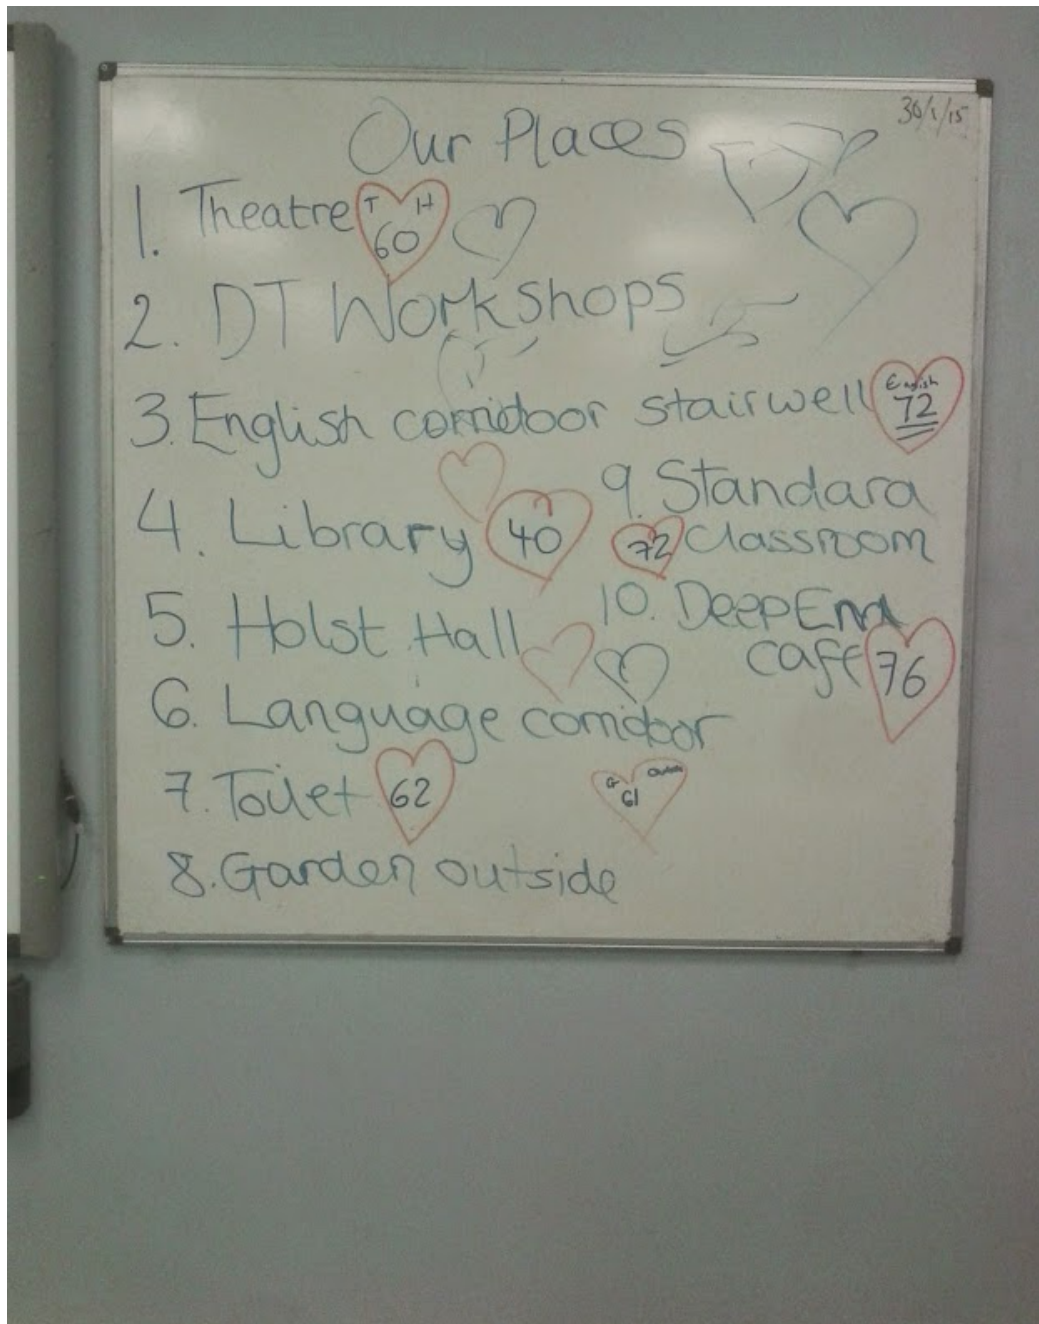 30/1/15
Our Places
1. Theatre T H 60
2. DT Workshops
3. English corridoor stairwell English 72
4. Library 40
5. Holst Hall
6. Language corridoor
7. Toilet 62
8. Garden outside
G outside 61
9. Standard
72 Classroom
10. Deep End
cafe 76